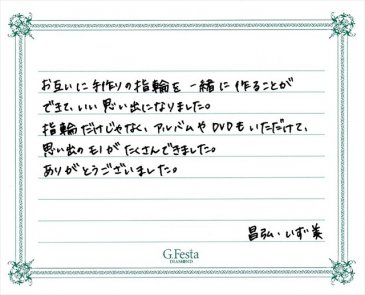 お互いに手作りの指輪を一緒に作ることが
できて、いい思い出になりました。
指輪だけじゃなく、アルバムやDVDもいただけて、
思い出のモノがたくさんできました。
ありがとうございました。
昌弘・いず美
G.Festa
DIAMOND